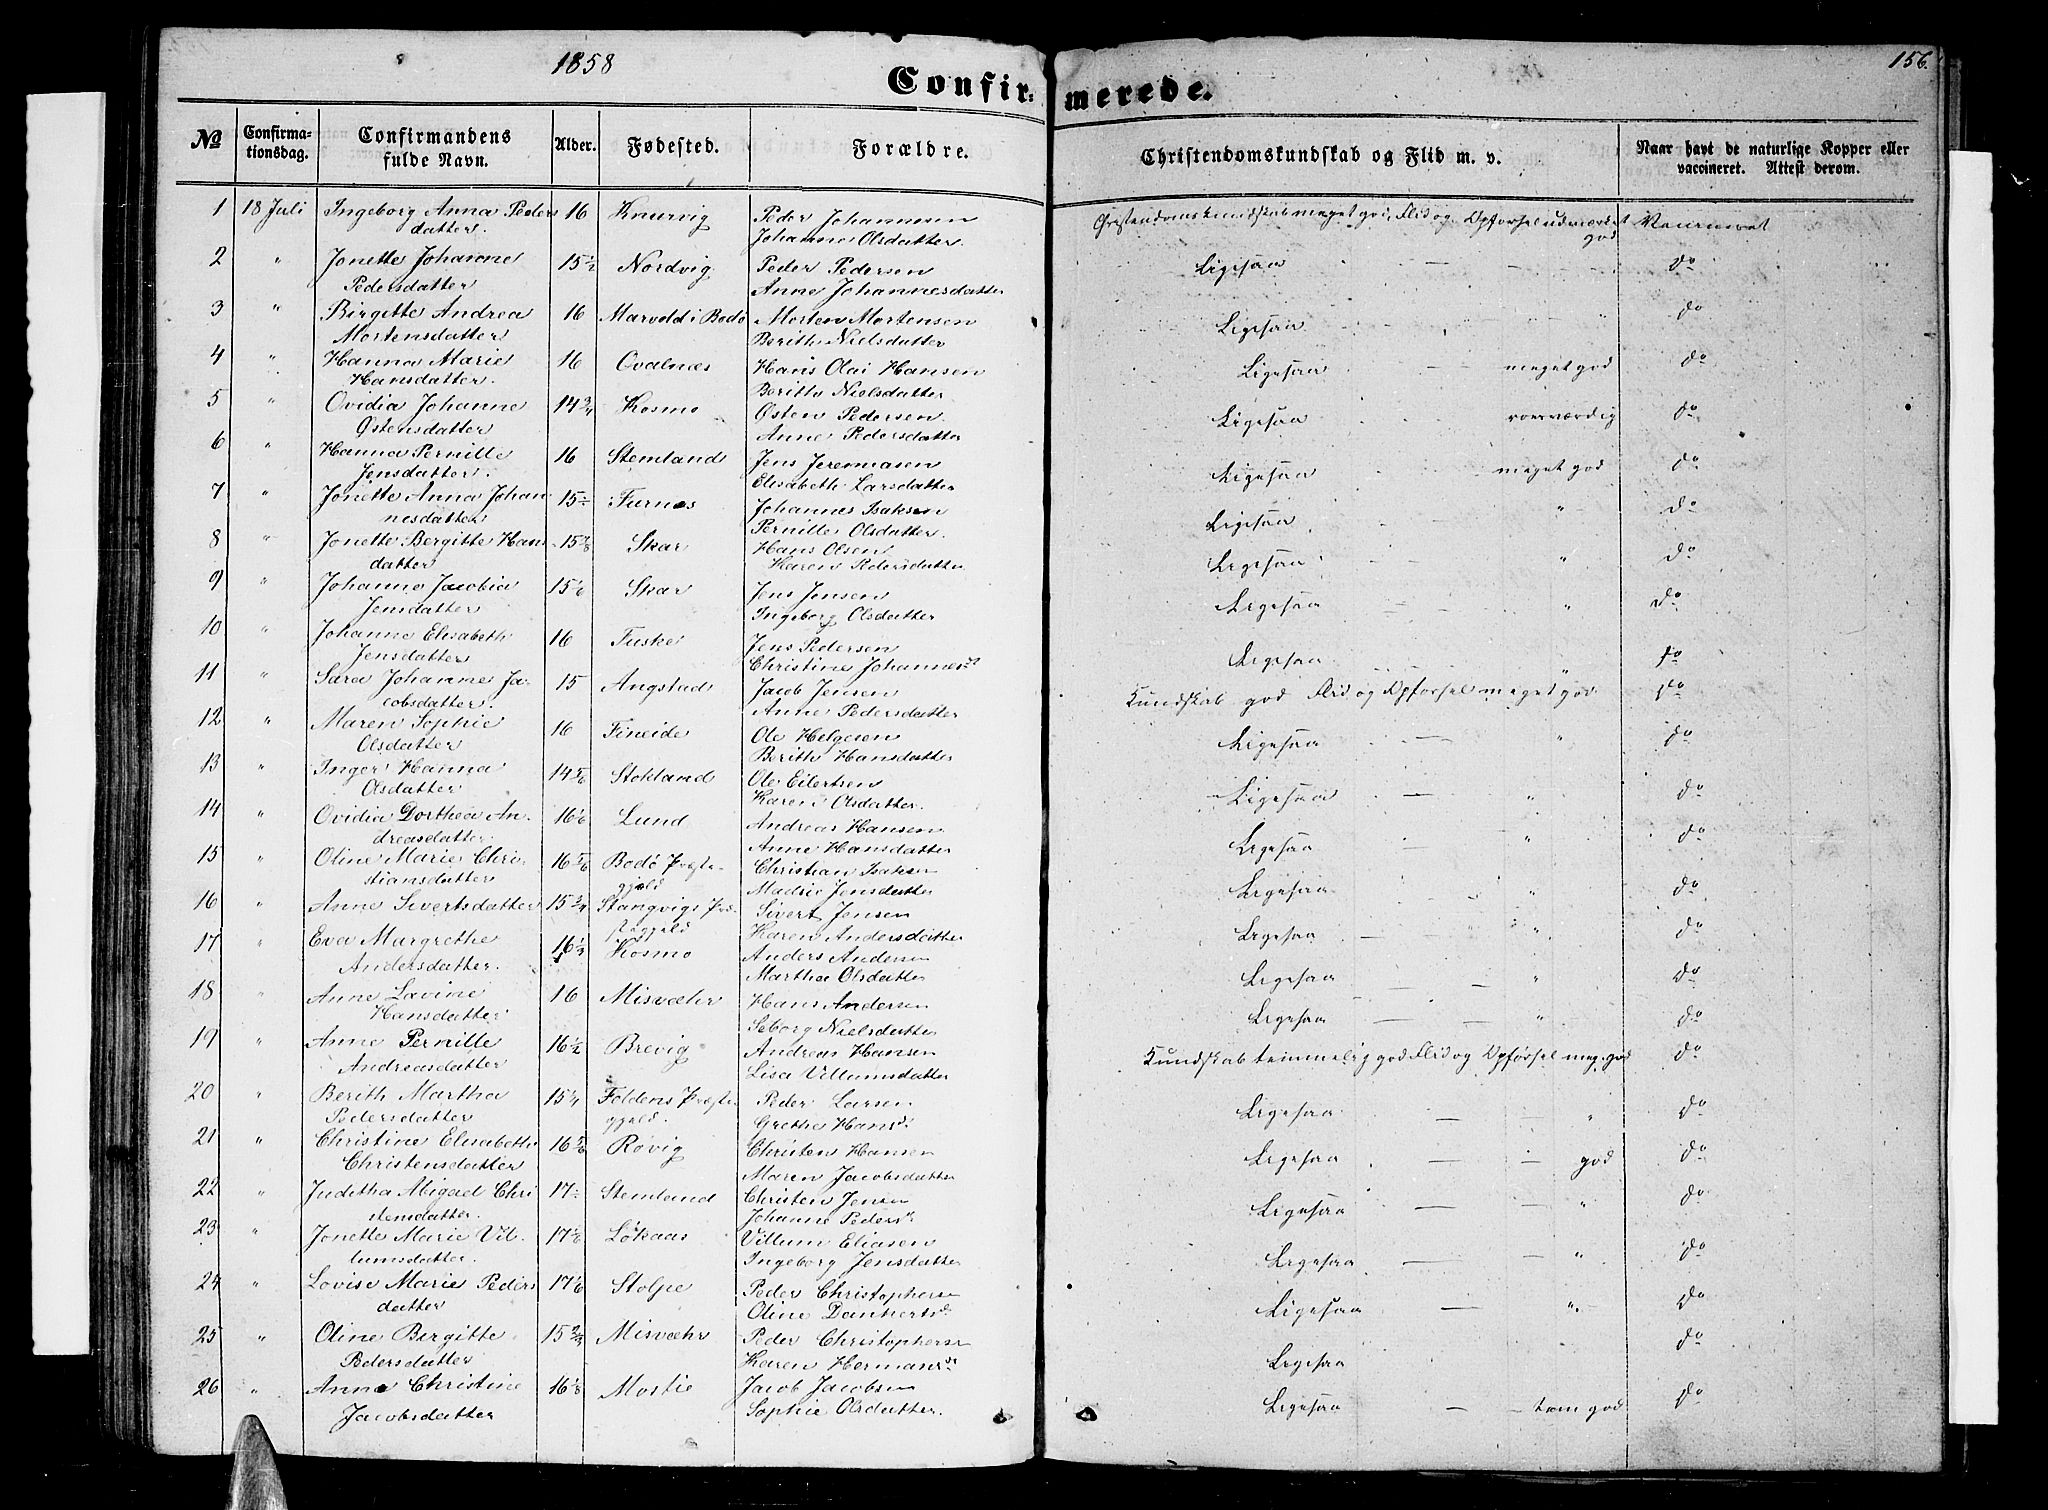 1858
156.
Confirmerede.
No Confirmationsdag. Confirmandens fulde Navn. Alder. Fødested. Forældre. Christendomskundskab og Flid m. v. Naar havt de naturlige Kopper eller vaccineret. Attest derom.
1 18 Juli Ingeborg Anna Peders 16 Knurvig Peder Johannesen meget god, Flid og Opførsel udmærket
datter. Johanna Olsdatter. god
2 " Jonette Johanne 15 1/2 Nordvig Peder Pedersen Ligesaa — — do
Pedersdatter Anne Johannesdatter
3 " Birgitte Andrea 16 i Bodø Morten Mortensen Ligesaa " do
Mortensdatter Berith Nielsdatter
4 " Hanna Marie 16 Ovalnæs Hans Olai Hansen Ligesaa — — meget god do
Hansdatter. Berith Nielsdatter
5 " Ovidia Johanne 14 3/4 Kosmo Østen Pedersen Ligesaa — roesværdig do
Østensdatter Anne Pedersdatter
6 " Hanna Pernille 16 Stemland Jens Jeremiasen Ligesaa meget god do
Jensdatter. Elisabeth Larsdatter
7 " Jonette Anna Johan 15 Furnes Johannes Isaksen Ligesaa " do
nesdatter Pernille Olsdatter.
8 " Jonette Bergitte Hans 15 Skar Hans Olsen Ligesaa " do
datter Karen Pedersdatter
9 " Johanna Jacobia 15 Skar Jens Jensen Ligesaa " do
Jensdatter Ingeborg Olsdatter
10 " Johanne Elisabeth 16 Fuske Jens Pedersen Ligesaa " do
Jensdatter Christine Johannesd
11 " Sara Johanne Ja- 15 Angstad Jacob Jensen Kundskab god Flid og Opførsel meget god do
cobsdatter. Anne Pedersdatter
12 " Maren Sophie 16 Fineide Ole Helgesen Ligesaa — " do
Olsdatter Berith Hansdatter
13 " Inger Hanna 14 5/6 Stokland Ole Eilertsen Ligesaa — " do
Olsdatter Karen Olsdatter.
14 " Ovidia Dorthea An- 16 1/6 Lund Andreas Hansen Ligesaa — " do
dreasdatter Anne Hansdatter
15 " Oline Marie Chri- 16 5/6 Bodø Præste- Christian Isaksen Ligesaa " do
stiansdatter gjæld Madrie Jensdatter
16 " Anne Sivertsdatter 15 3/4 Stangvigs Præ- Sivert Jensen Ligesaa — " do
stegjæld Karen Andersdatter
17 " Eva Margrethe 16 Kosmo Anders Andersen Ligesaa — — " do
Andersdatter. Martha Olsdatter
18 " Anne Lavine 16 Misvæhr Hans Andersen Ligesaa — — " do
Hansdatter Seborg Nielsdatter
19 " Anne Pernille 16 1/2 Brevig Andreas Hansen Kundskab temmelig god Flid og Opførsel meg. god do
Andreasdatter Lisa Villumsdatter
20 " Berith Martha 15 1/4 Foldens Præste- Peder Larsen Ligesaa — — " do
Pedersdatter gjæld. Grethe Hansd
21 " Christine Elisabeth 16 5/6 Røvig Christen Hansen Ligesaa — — god do
Christensdatter Maren Jacobsdatter
22 " Juditha Abigael Chri 17 Stemland Christen Jensen Ligesaa — — " do
stensdatter. Johanne Pedersd
23 " Jonette Marie Vil- 17 1/6 Løkaas Villum Eliasen Ligesaa — — " do
lumsdatter. Ingeborg Jensdatter
24 " Lovise Marie Peders 17 1/6 Stolpe Peder Christophersen Ligesaa — — " do
datter Oline Dankertsd
25 " Oline Birgitte 15 2/3 Misvæhr Peder Christophersen Ligesaa do
Pedersdatter Karen Hermansd
26 " Anne Christine 16 Jacob Jacobsen Ligesaa — — tem god do
Jacobsdatter Sophie Olsdatter.